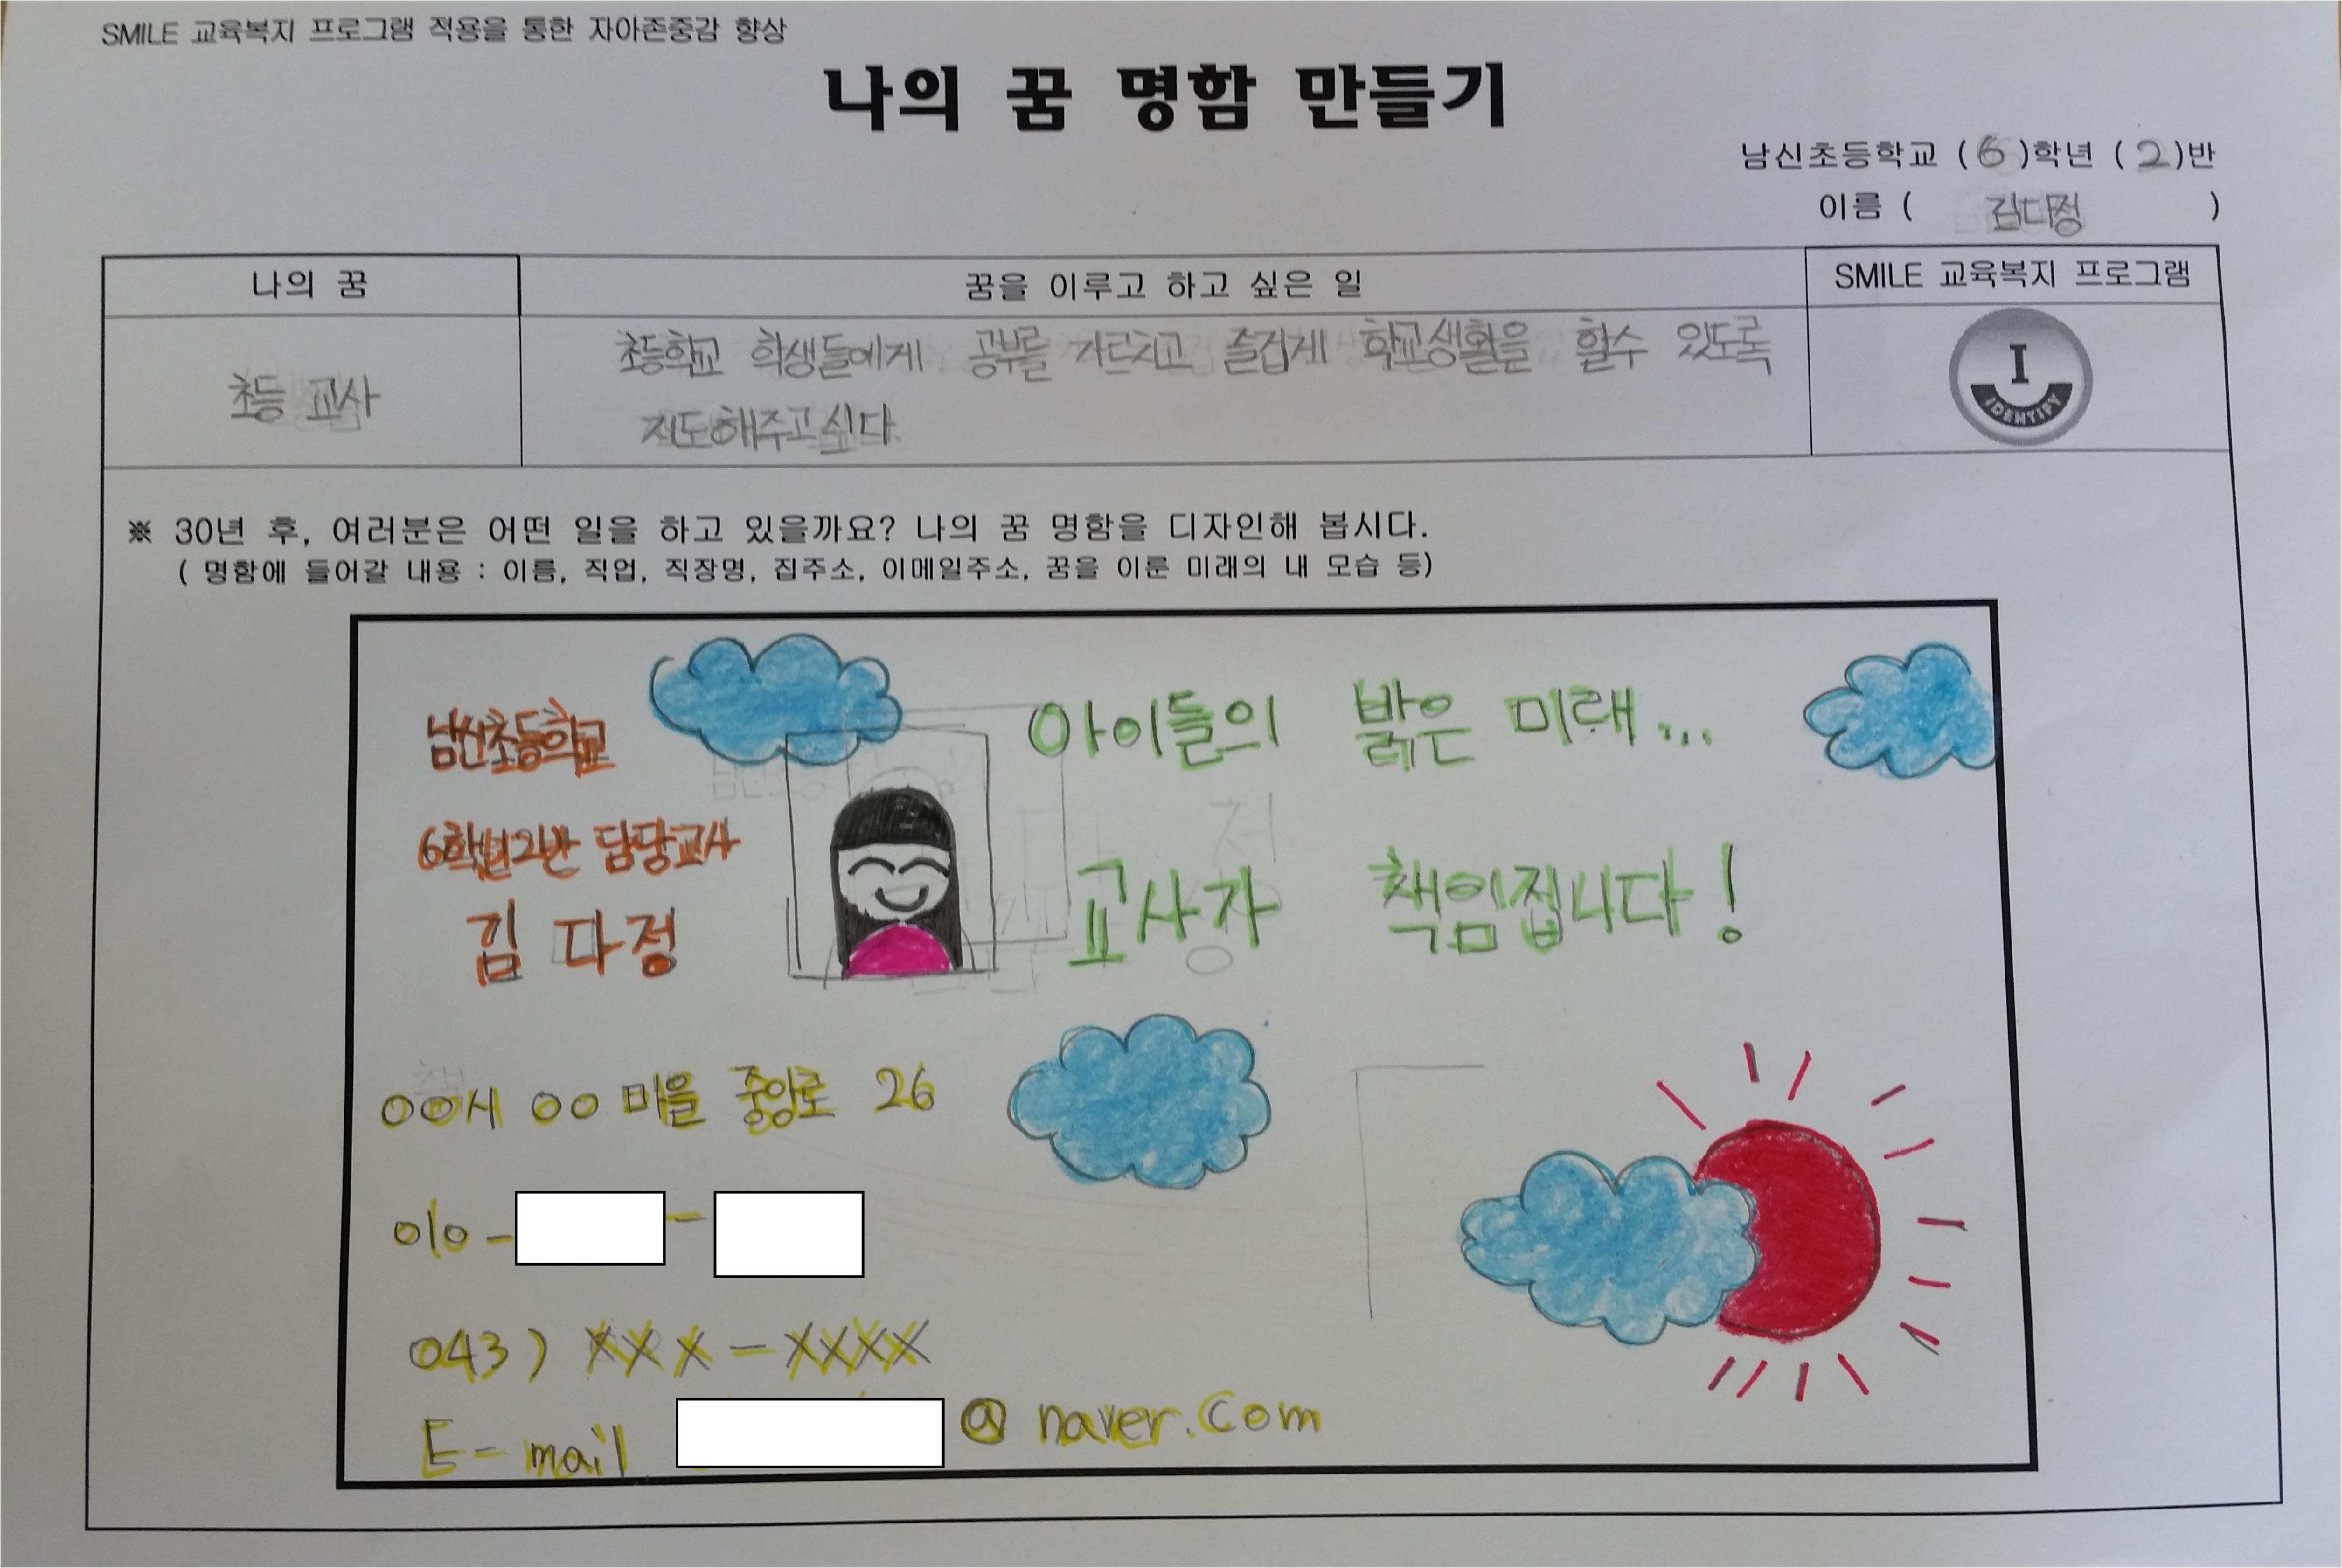 SMILE 교육복지 프로그램 적용을 통한 자아존중감 향상
나의 꿈 명함 만들기
남신초등학교 (6)학년 (2)반
이름 ( 김다정 )
나의 꿈
꿈을 이루고 하고 싶은 일
SMILE 교육복지 프로그램
초등 교사
초등학교 학생들에게 공부를 가르치고 즐겁게 학교생활을 할수 있도록
지도해주고싶다.
I
IDENTIFY
※ 30년 후, 여러분은 어떤 일을 하고 있을까요? 나의 꿈 명함을 디자인해 봅시다.
( 명함에 들어갈 내용 : 이름, 직업, 직장명, 집주소, 이메일주소, 꿈을 이룬 미래의 내 모습 등)
남신초등학교
6학년2반 담당교사
김 다정
아이들의 밝은 미래...
교사가 책임집니다!
00시 00 마을 중앙로 26
010 - -
043) XXX - XXXX
E-mail @ naver.com